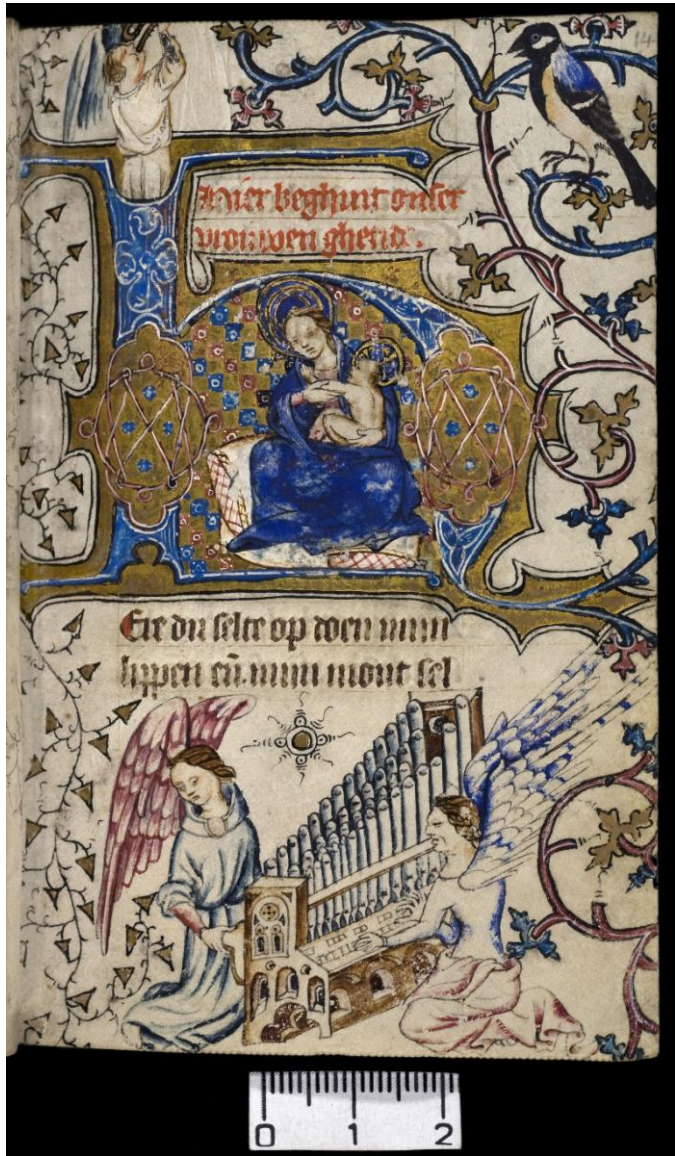 14
Hier beghint onser
vrouwen ghetide.
Ere du selte op doen mijn
lippen en̄ mijn mont sel
0 1 2